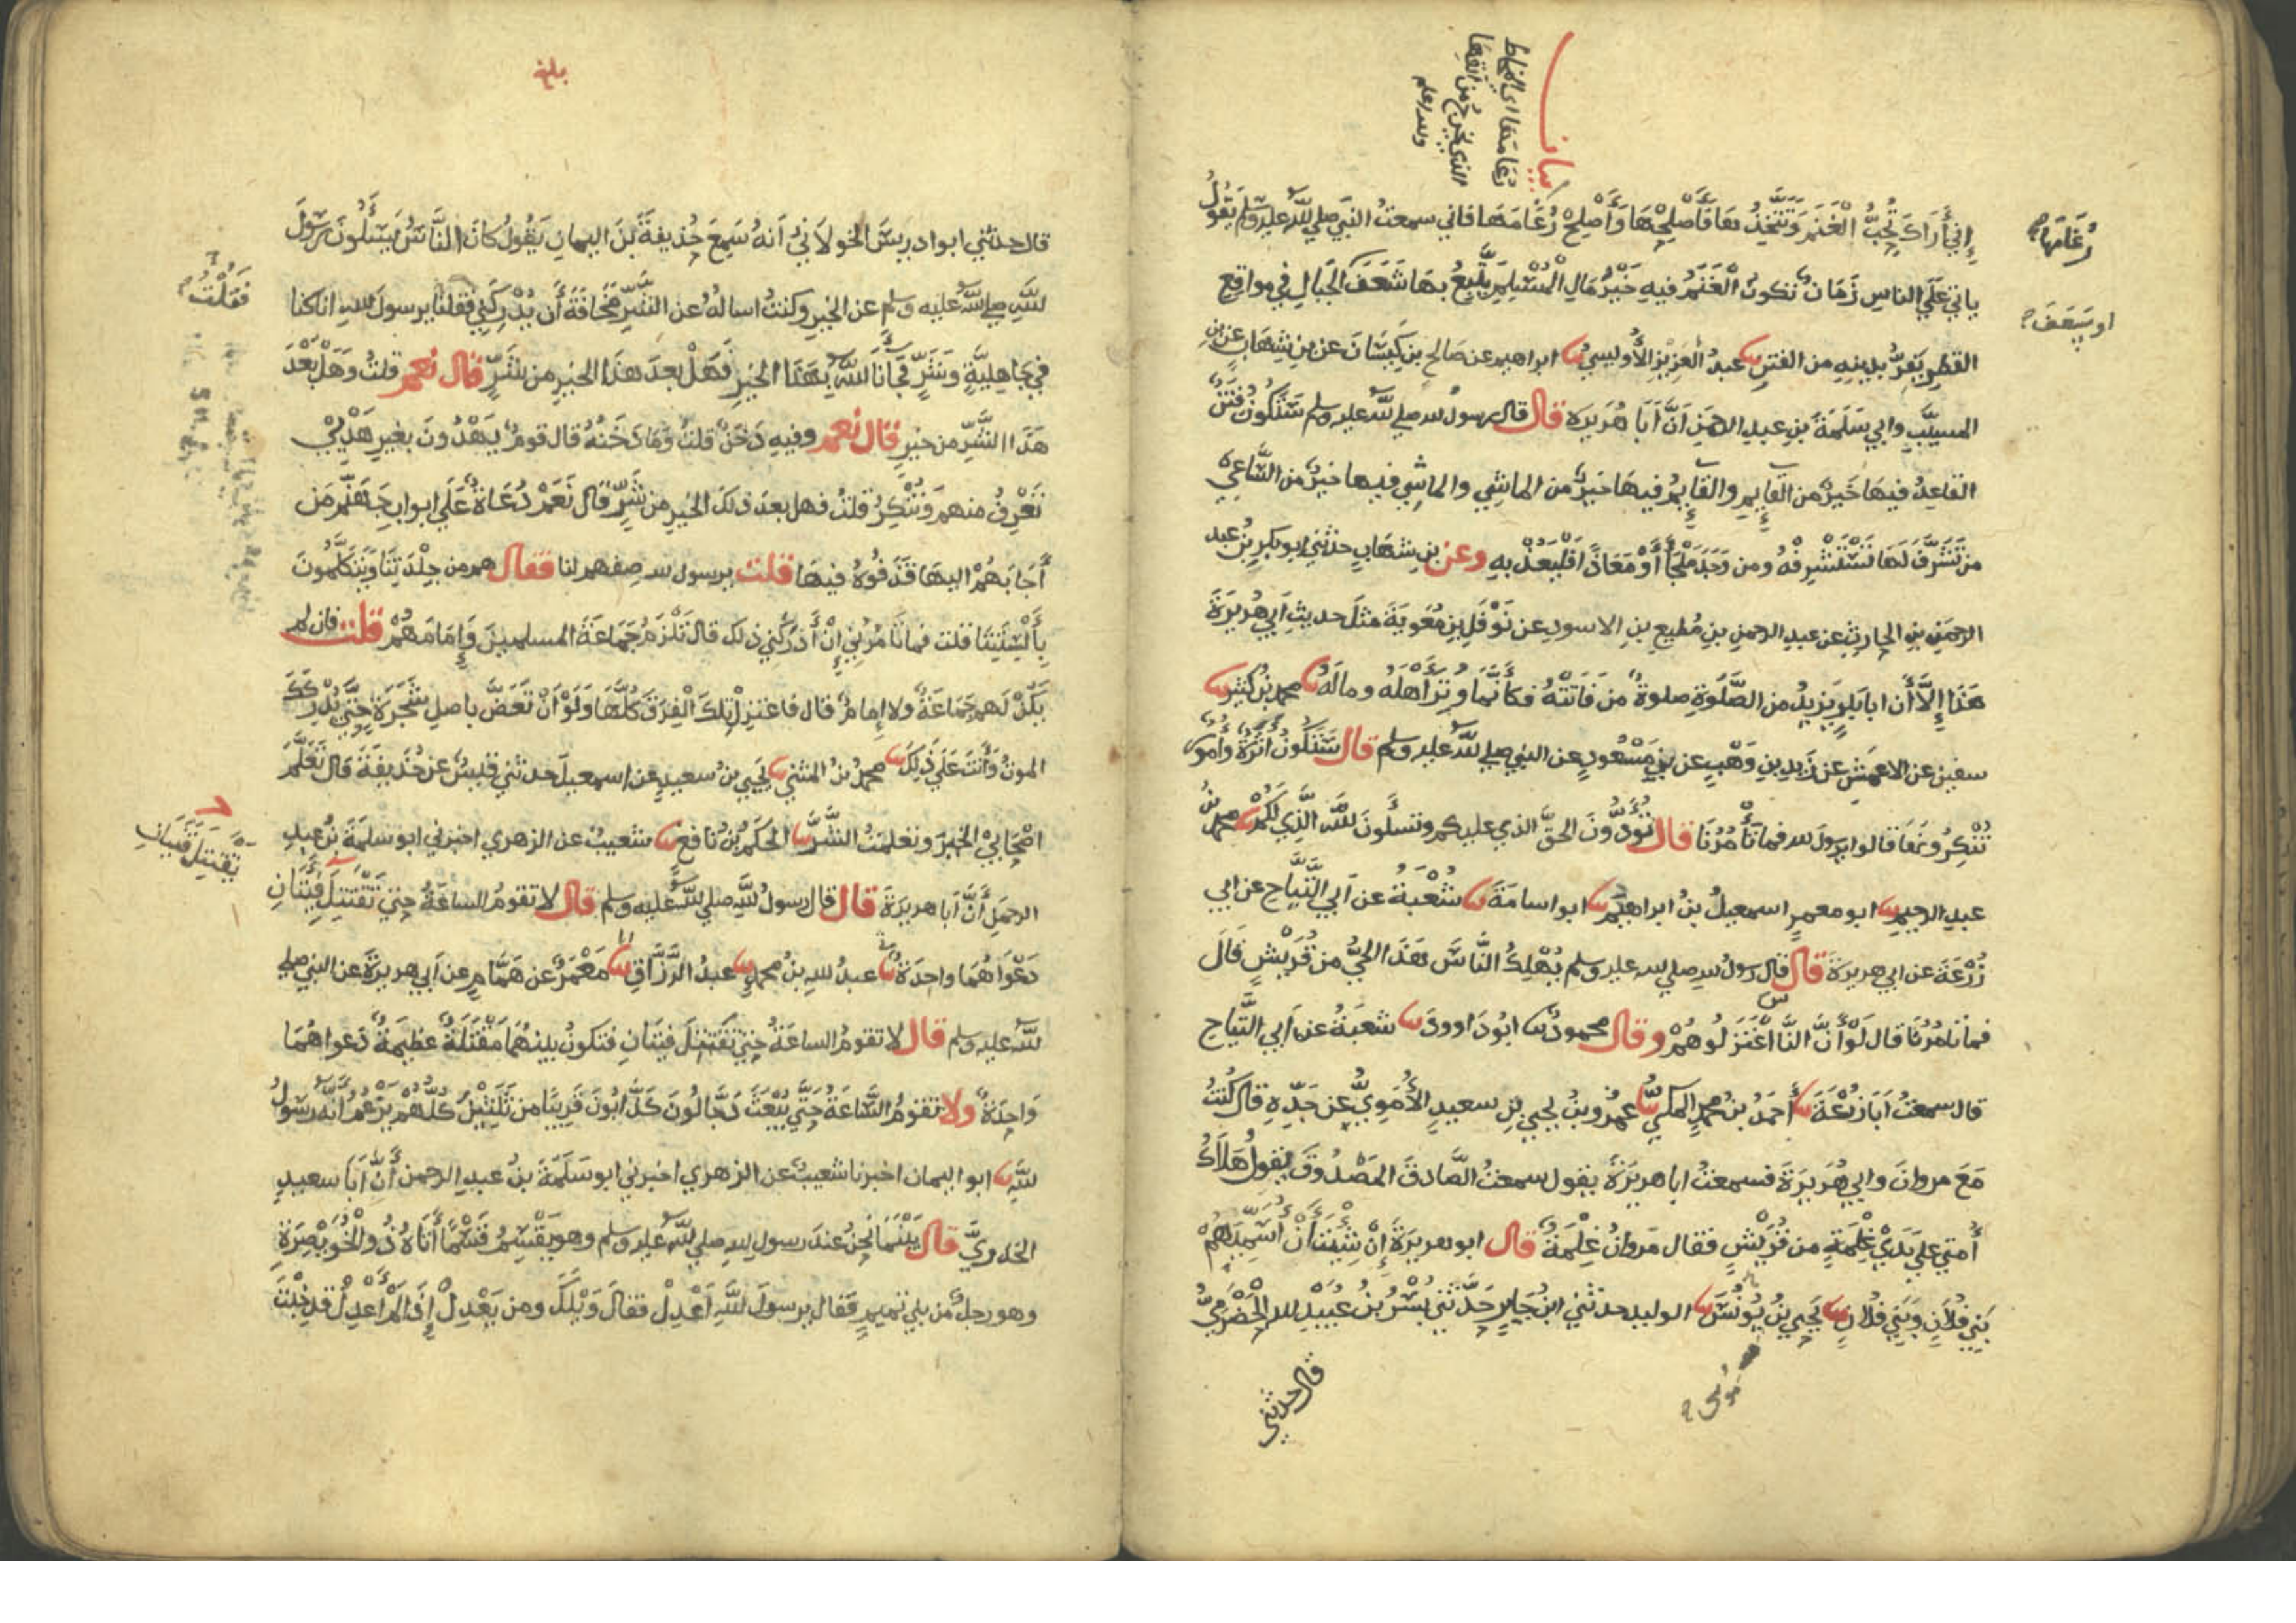 بيان
رعامها اي المخاط
الذي يخرج من انفها
والله اعلم
إني أَرَاكَ تُحِبُّ الْغَنَمَ وَتَتَّخِذُهَا فَأَصْلِحْهَا وَأَصْلِحْ رُعَامَهَا فاني سمعتُ النبي صلي الله عليه وسلم يقول
رُعَامَهَا
ياتي عَلَي الناسِ زَمَانٌ تكونُ الْغَنَمُ فيهِ خَيْرُ مَالِ الْمُسْلِمِ يَتَّبِعُ بهَا شَعَفَ الجِبَالِ في مواقِعِ
او سَعَفَ
القَطْرِ يَفِرُّ بدينِهِ من الفتن ثنا عبدُ العَزِيزِ الأُوَيسِيُّ ثنا ابراهيم عن صَالحِ بنِ كَيْسَانَ عن بنِ شِهَابٍ عن بنِ
المسيَّبِ وابي سَلَمَةَ بنِ عبدِ الرحمنِ أَنَّ أَبَا هُرَيرَةَ قال قال رسولُ الله صلي الله عليه وسلم سَتَكُونُ فِتَنٌ
القاعِدُ فيهَا خَيرٌ من القَايِمِ والقَايِمُ فيهَا خَيرٌ من الماشي والماشِي فيها خيرٌ من السَّاعِي
من تَشَرَّفَ لَهَا تَسْتَشْرِفْهُ ومن وَجَدَ مَلْجَأً أَوْ مَعَاذًا فَلْيَعُذْ بهِ وعن بنِ شهَابٍ حدثني ابو بكرِ بنُ عبد
الرحمنِ بنِ الحارثِ عن عبدِ الرحمنِ بنِ مُطِيعِ بنِ الاسودِ عن نَوْفَلِ بنِ مُعَوِيَةَ مثلَ حديثِ أبي هُرَيرَةَ
هَذَا إِلاَّ أَنَّ ابا بكرٍ يزيدُ من الصَّلَوةِ صلوةٌ من فَاتَتْهُ فكأَنَّمَا وُتِرَ أَهْلَهُ ومالَهُ ثنا محمدُ بنُ كثيرٍ ثنا
سفين عن الاعمشِ عن زيدِ بنِ وَهْبٍ عن بنِ مَسْعُودٍ عن النبي صلي الله عليه وسلم قال سَتَكُونُ أَثَرَةٌ وأُمورٌ
تُنْكِرُونَهَا قالوا يرسولَ الله فما تَأْمُرُنَا قال تُؤَدُّونَ الحقَّ الذي عليكم وتسأَلونَ اللهَ الَّذِي لَكُمْ ثنا محمدُ بنُ
عبدِ الرحيمِ ثنا ابو معمرٍ اسمعيلُ بنُ ابراهيمَ ثنا ابو اسامَةَ ثنا شُعْبَةُ عن أبي التَّيَّاحِ عن ابي
زُرْعَةَ عن ابي هريرَةَ قال قال رسولُ اللهِ صلي الله عليه وسلم يُهْلِكُ النَّاسَ هَذَا الحيُّ من قُرَيْشٍ قَالَ
فما تَامُرُنَا قال لَوْ أَنَّ النَّاسَ اعْتَزَلُوهُمْ وقال محمودٌ ثنا ابُو دَاوودَ ثنا شعبَةُ عن أبي التَّيَّاحِ
قال سمعتُ أَبَا زُرْعَةَ ثنا أَحمَدُ بنُ محمدٍ المكيُّ ثنا عمرُو بنُ يحيي بنِ سعيدٍ الأُمَوِيُّ عن جَدِّهِ قال كُنْتُ
مَعَ مروانَ وابي هُرَيرَةَ فسمعتُ ابا هريرَةَ يقول سمعتُ الصَّادقَ المصْدُوقَ يقولُ هَلاَكُ
أُمتي علي يَدَيْ غِلْمَةٍ من قُرَيْشٍ فقال مَروانُ غِلْمَةٌ قال ابو هريرَةَ إِنْ شِئْتَ أَنْ أُسَمِّيَهُمْ
بَنِي فُلاَنٍ وَبَنِي فُلاَنٍ ثنا يحيي بنُ يُونُسَ ثنا الوليد حدثني ابنُ جَابِرٍ حَدَّثني بُسْرُ بنُ عُبَيْدِ الله الحَضْرَمِيُّ
موسى
قال حدثني
بلغ
قال حدثني ابو ادريسَ الخولاَنيُّ أَنهُ سَمِعَ حُذيفةَ بنَ اليمانِ يَقُولُ كانَ النَّاسُ يَسْئَلُونَ رسُولَ
اللهِ صلي اللهُ عليه وسلم عن الخيرِ وكنتُ اسالهُ عن الشَّرِّ مَخَافَةَ أَن يُدْرِكَنِي فقلنا يرسولَ اللهِ اناكنا
فَقُلْتُ
في جَاهِليَّةٍ وَشَرٍّ فجَأَنَا اللهُ بهَذَا الخيرِ فَهَلْ بعدَ هذَا الخيْرِ من شَرٍّ قال نعم قلتُ وَهَلْ بَعْدَ
هَذَا الشَّرِّ من خيرٍ قال نعم وفيهِ دَخَنٌ قلتُ وَمَا دَخَنُهُ قال قومٌ يَهْدُونَ بغيرِ هَدْيي
تَعْرِفُ منهم وَتُنْكِرُ قلتُ فهل بعدَ ذلكَ الخيرِ من شَرٍّ قال نَعَمْ دُعَاةٌ عَلَي ابوابِ جَهَنَّمَ مَن
أَجَابَهُمْ اليهَا قَذَفُوهُ فيهَا قلت يرسول الله صِفهم لنا فقال هم من جِلْدَتِنَا وَيَتَكَلَّمُونَ
بِأَلْسِنَتِنَا قلت فما تَامُرُنِي إِنْ أَدْرَكَنِي ذلك قال تَلْزَمُ جَمَاعَةَ المسلمِينَ وَإِمَامَهُمْ قلت فان لم
يَكُنْ لَهم جَمَاعَةٌ ولا إِمَامٌ قال فاعتزِلْ تِلْكَ الْفِرَقَ كُلَّهَا وَلَوْ أَنْ تَعَضَّ باصلِ شَجَرَةٍ حَتَّي يُدْرِكَكَ
الموتُ وَأَنتَ عَلَي ذَلِكَ ثنا محمدُ بنُ المثني ثنا يحيي بنُ سعيدٍ عن اسمعيلَ حدثني قيسٌ عن حُذَيفَةَ قال تَعَلَّمَ
اصْحَابِيْ الخيرَ وتعلمتُ الشَّرَّ ثنا الحكَمُ بنُ نافِعٍ ثنا شعيبٌ عن الزهري اخبرني ابو سَلَمَةَ بنُ عبدِ
الرحمنِ أَنَّ أَبا هريرَةَ قال قال رسولُ اللهِ صلي اللهُ عليه وسلم قال لا تقومُ الساعَةُ حتي تَقْتَتِلَ فِئَتَانِ
يَقْتَتِلَ فَتَيَانِ
دَعْوَاهُمَا واحِدَةٌ ثنا عبدُ اللهِ بنُ محمدٍ ثنا عبدُ الرَّزَّاقِ انا مَعْمَرٌ عن هَمَّامٍ عن أبي هريرَةَ عن النبي صلي
اللهُ عليه وسلم قال لا تقومُ الساعَةُ حتي تَقْتَتِلَ فِئَتَانِ فتكونُ بينهُمَا مَقْتَلَةٌ عظيمَةٌ دَعواهُمَا
وَاحِدَةٌ ولا تقومُ السَّاعَةُ حَتَّي يُبْعَثَ دَجَّالُونَ كَذَّابُونَ قَرِيبًا من ثَلَثِينَ كُلُّهُمْ يَزْعُمُ أَنَّهُ رسُولُ
اللهِ ثنا ابو اليمان اخبرنا شعيبٌ عن الزهري اخبرني ابو سَلَمَةَ بنُ عبدِ الرحمن أَنَّ أَبَا سعيدٍ
الخدريَّ قال بَيْنَمَا نحنُ عندَ رسولِ اللهِ صلي اللهُ عليه وسلم وهو يَقْسِمُ قَسْمًا أَتَاهُ ذُو الْخُوَيْصِرَةِ
وهو رجلٌ من بني تميمٍ فقال يرسولَ اللهِ اعْدِلْ فقالَ وَيْلَكَ ومن يَعْدِلْ إِذَا لَمْ أَعْدِلْ قد خِبْتَ